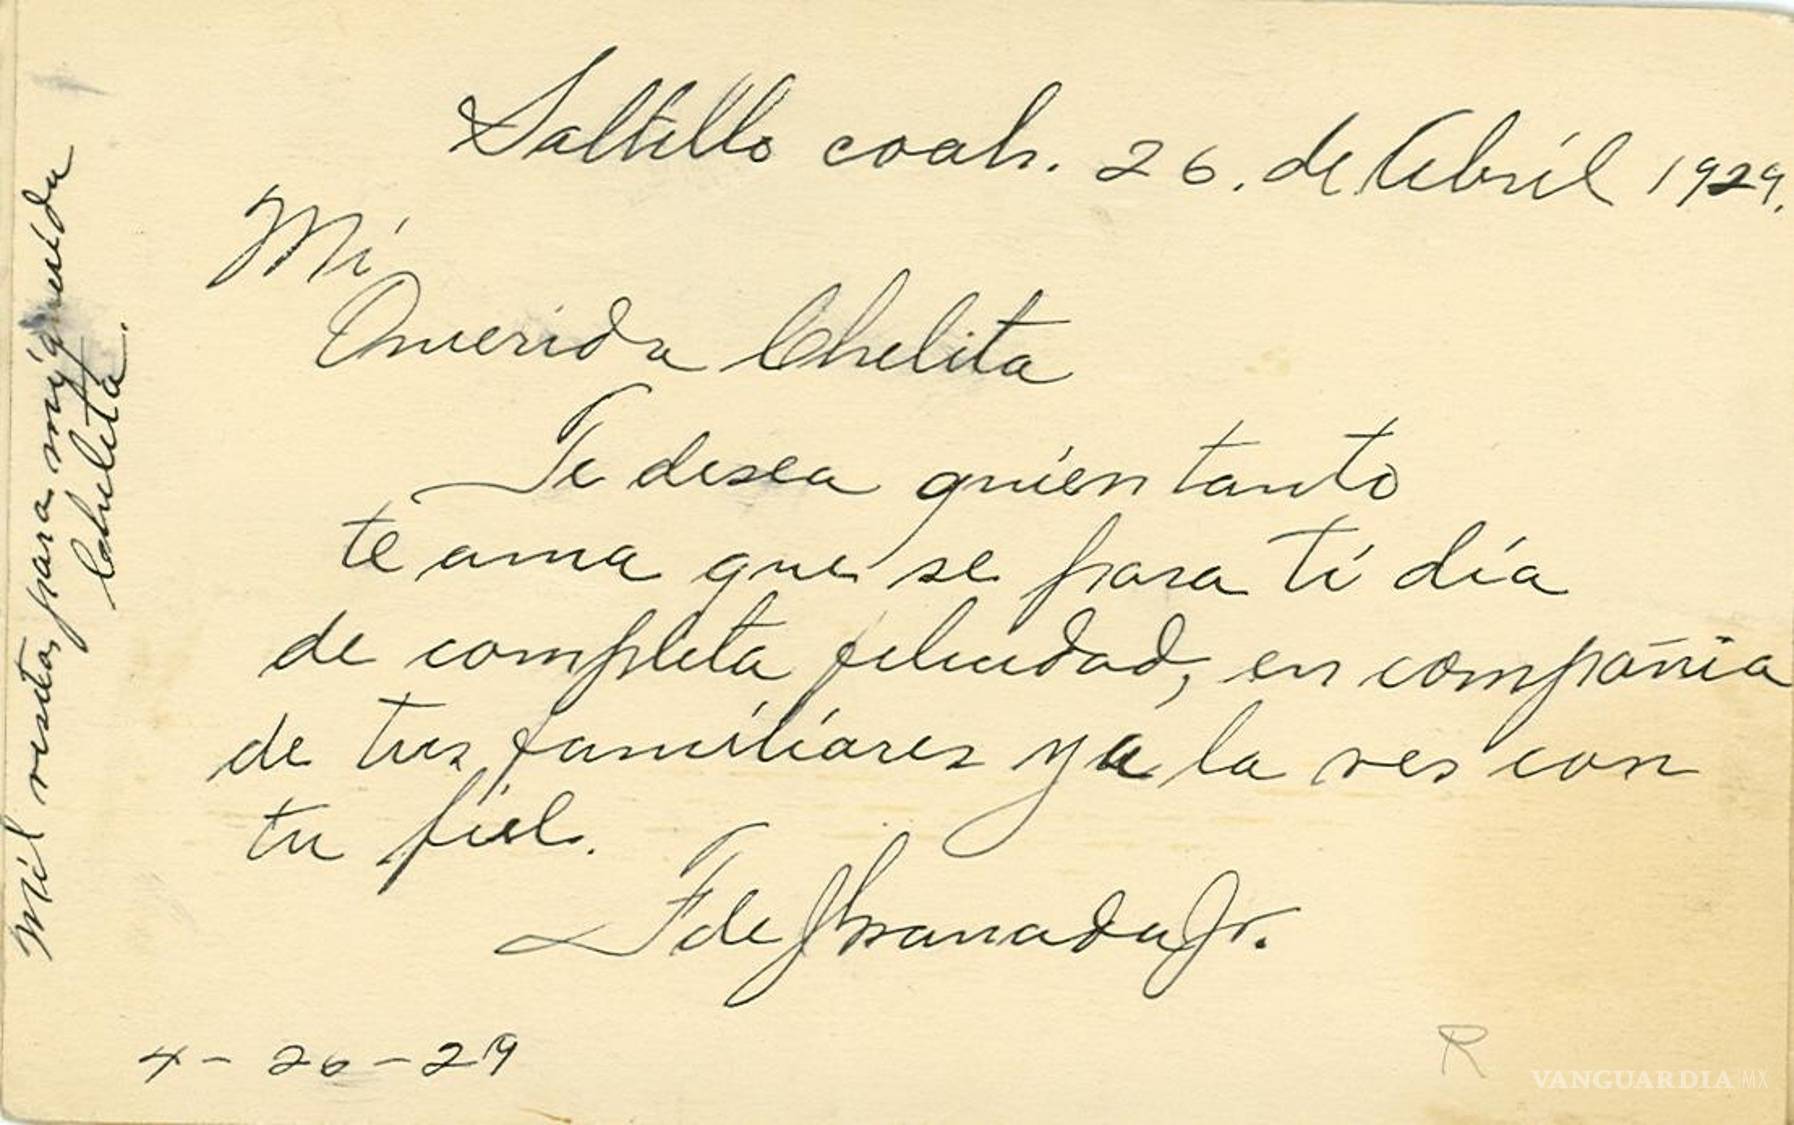 Saltillo coah. 26. de Abril 1929.
Mi
Querida Chelita
Te desea quien tanto
te ama que se para ti día
de completa felicidad, en compañia
de tus familiares ya la ves con
tu fiel.
F de Granada Jr.
4-26-29
Mil vesitos para mi querida
Chelita.
R
VANGUARDIA|MX